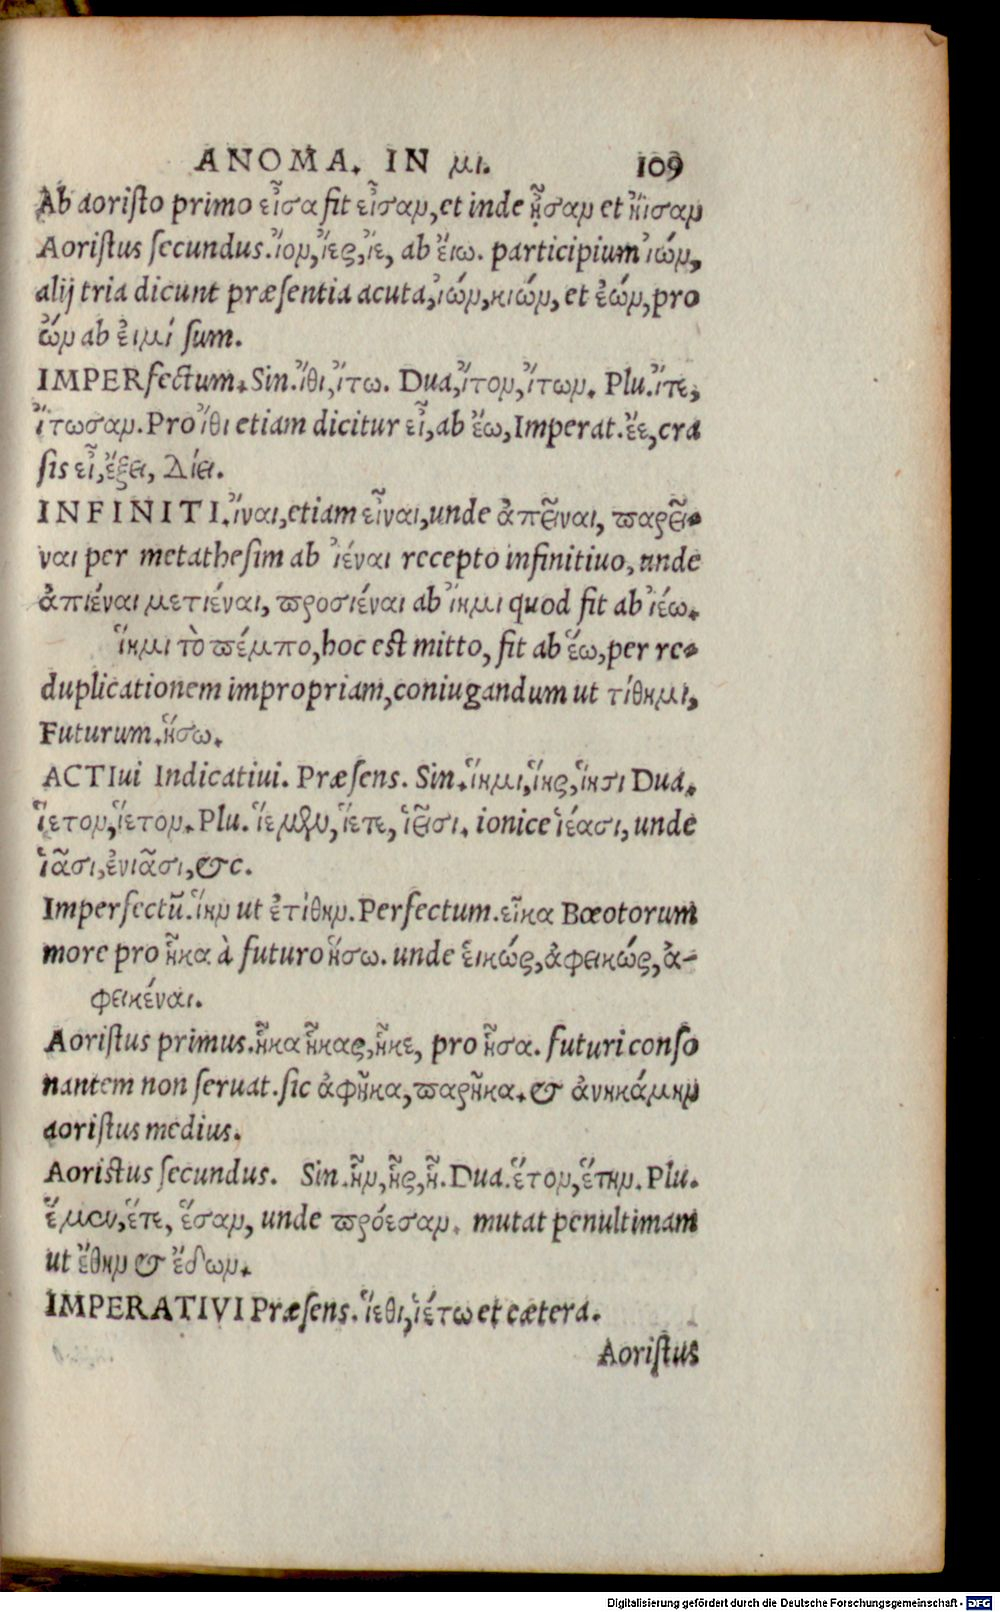 ANOMA. IN μι. 109
Ab aoristo primo εἶσα fit εἶσαν, et inde ᾖσαν et ἤϊσαν
Aoristus secundus. ἴον, ἴες, ἴε, ab ἴκω. participium ἰών,
alij tria dicunt præsentia acuta, ἰών, κιών, et ἐών, pro
ὤν ab εἰμί sum.
IMPERfectum. Sin. ἴθι, ἴτω. Dua, ἴτον, ἴτων. Plu. ἴτε,
ἴτωσαν. Pro ἴθι etiam dicitur εἶ, ab ἔω, Imperat. ἔε, cra
sis εἶ, ἔξει, Δίει.
INFINITI. ἴναι, etiam εἶναι, unde ἀπεῖναι, παρεῖ-
ναι per metathesim ab ἰέναι recepto infinitiuo, unde
ἀπιέναι μετιέναι, προσιέναι ab ἴημι quod fit ab ἰέω.
ἵημι τὸ πέμπο, hoc est mitto, fit ab ἕω, per re-
duplicationem impropriam, coniugandum ut τίθημι,
Futurum. ἥσω.
ACTIui Indicatiui. Præsens. Sin. ἵημι, ἵης, ἵησι Dua.
ἵετον, ἵετον. Plu. ἵεμεν, ἵετε, ἱεῖσι. ionice ἱέασι, unde
ἱᾶσι, ἐνιᾶσι, &c.
Imperfectũ. ἵην ut ἐτίθην. Perfectum. εἷκα Bœotorum
more pro ἧκα à futuro ἥσω. unde εἱκώς, ἀφεικώς, ἀ-
φεικέναι.
Aoristus primus. ἧκα ἧκας, ἧκε, pro ἧσα. futuri conso
nantem non seruat. sic ἀφῆκα, παρῆκα. & ἀνηκάμην
aoristus medius.
Aoristus secundus. Sin. ἧν, ἧς, ἧ. Dua. ἕτον, ἕτην. Plu.
ἕμεν, ἕτε, ἕσαν, unde πρόεσαν. mutat penultimam
ut ἔθην & ἔδων.
IMPERATIVI Præsens. ἵεθι, ἱέτω et cætera.
Aoristus
Digitalisierung gefördert durch die Deutsche Forschungsgemeinschaft - DFG